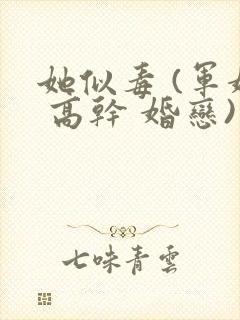 她似毒(軍
高幹 婚戀)
七味青雲